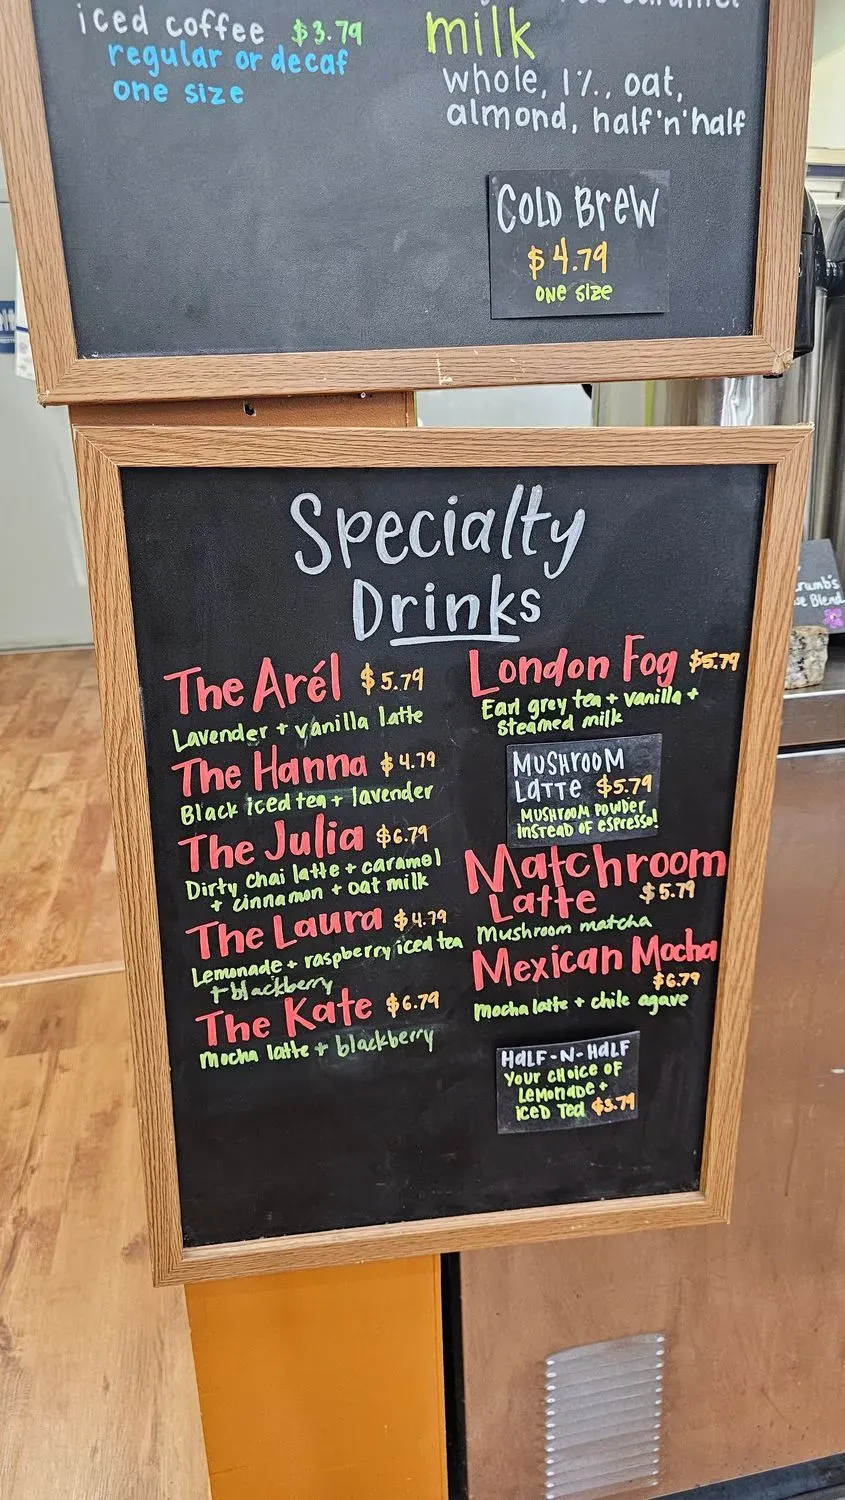 iced coffee $3.79
regular or decaf
one size
caramel
milk
whole, 1%, oat,
almond, half'n'half
COLD BREW
$4.79
ONE SIZE
Specialty
Drinks
The Arél $5.79
Lavender + vanilla latte
The Hanna $4.79
Black iced tea + lavender
The Julia $6.79
Dirty chai latte + caramel
+ cinnamon + oat milk
The Laura $4.79
Lemonade + raspberry iced tea
+ blackberry
The Kate $6.79
Mocha latte + blackberry
London Fog $5.79
Earl grey tea + vanilla +
steamed milk
MUSHROOM
LATTE $5.79
MUSHROOM POWDER
INSTEAD OF ESPRESSO!
Matchroom
Latte $5.79
Mushroom matcha
Mexican Mocha
$6.79
Mocha latte + chile agave
HALF-N-HALF
YOUR CHOICE OF
LEMONADE +
ICED TEA $3.79
Blend